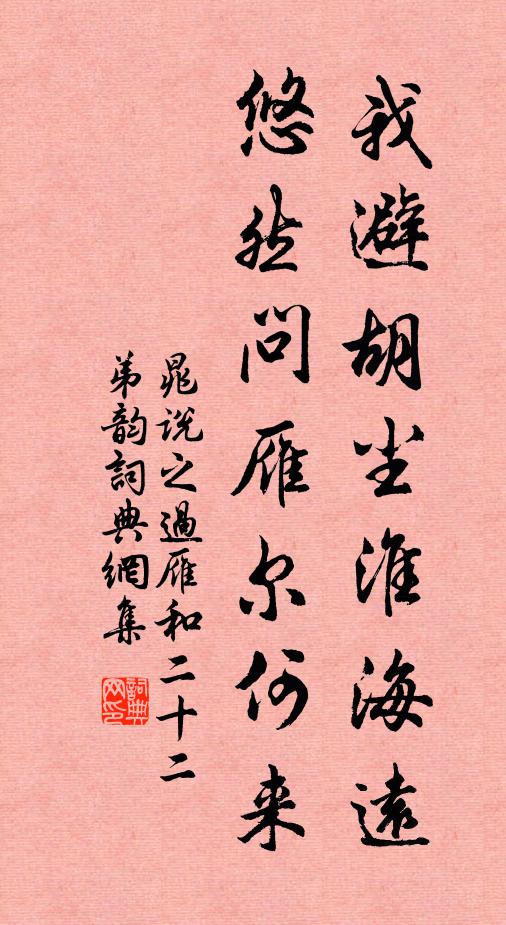 我避胡尘淮海遠
悠然问雁尔何来
晁説之過雁和二十二
弟韵詞典網集
詞典网印